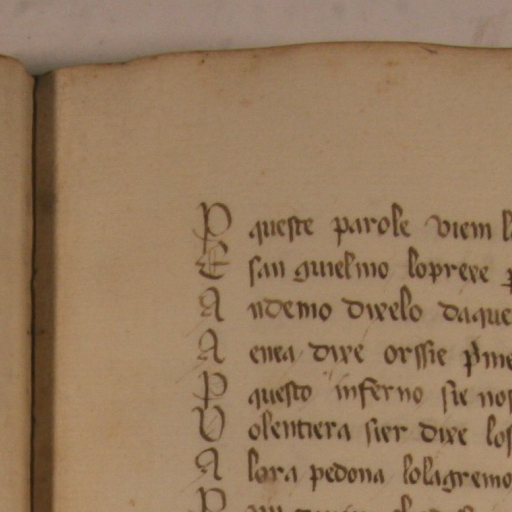 P queste parole viem l
E san guielmo loprexe p
A ndemo dixelo daque
A enea dixe orssie pme
P questo inferno sie nos
V olentiera sier dixe los
A lora pedona lolagremo
P